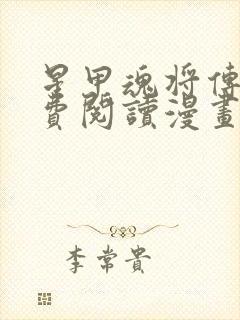 星甲魂将傳
費閱讀漫畫
李常貴